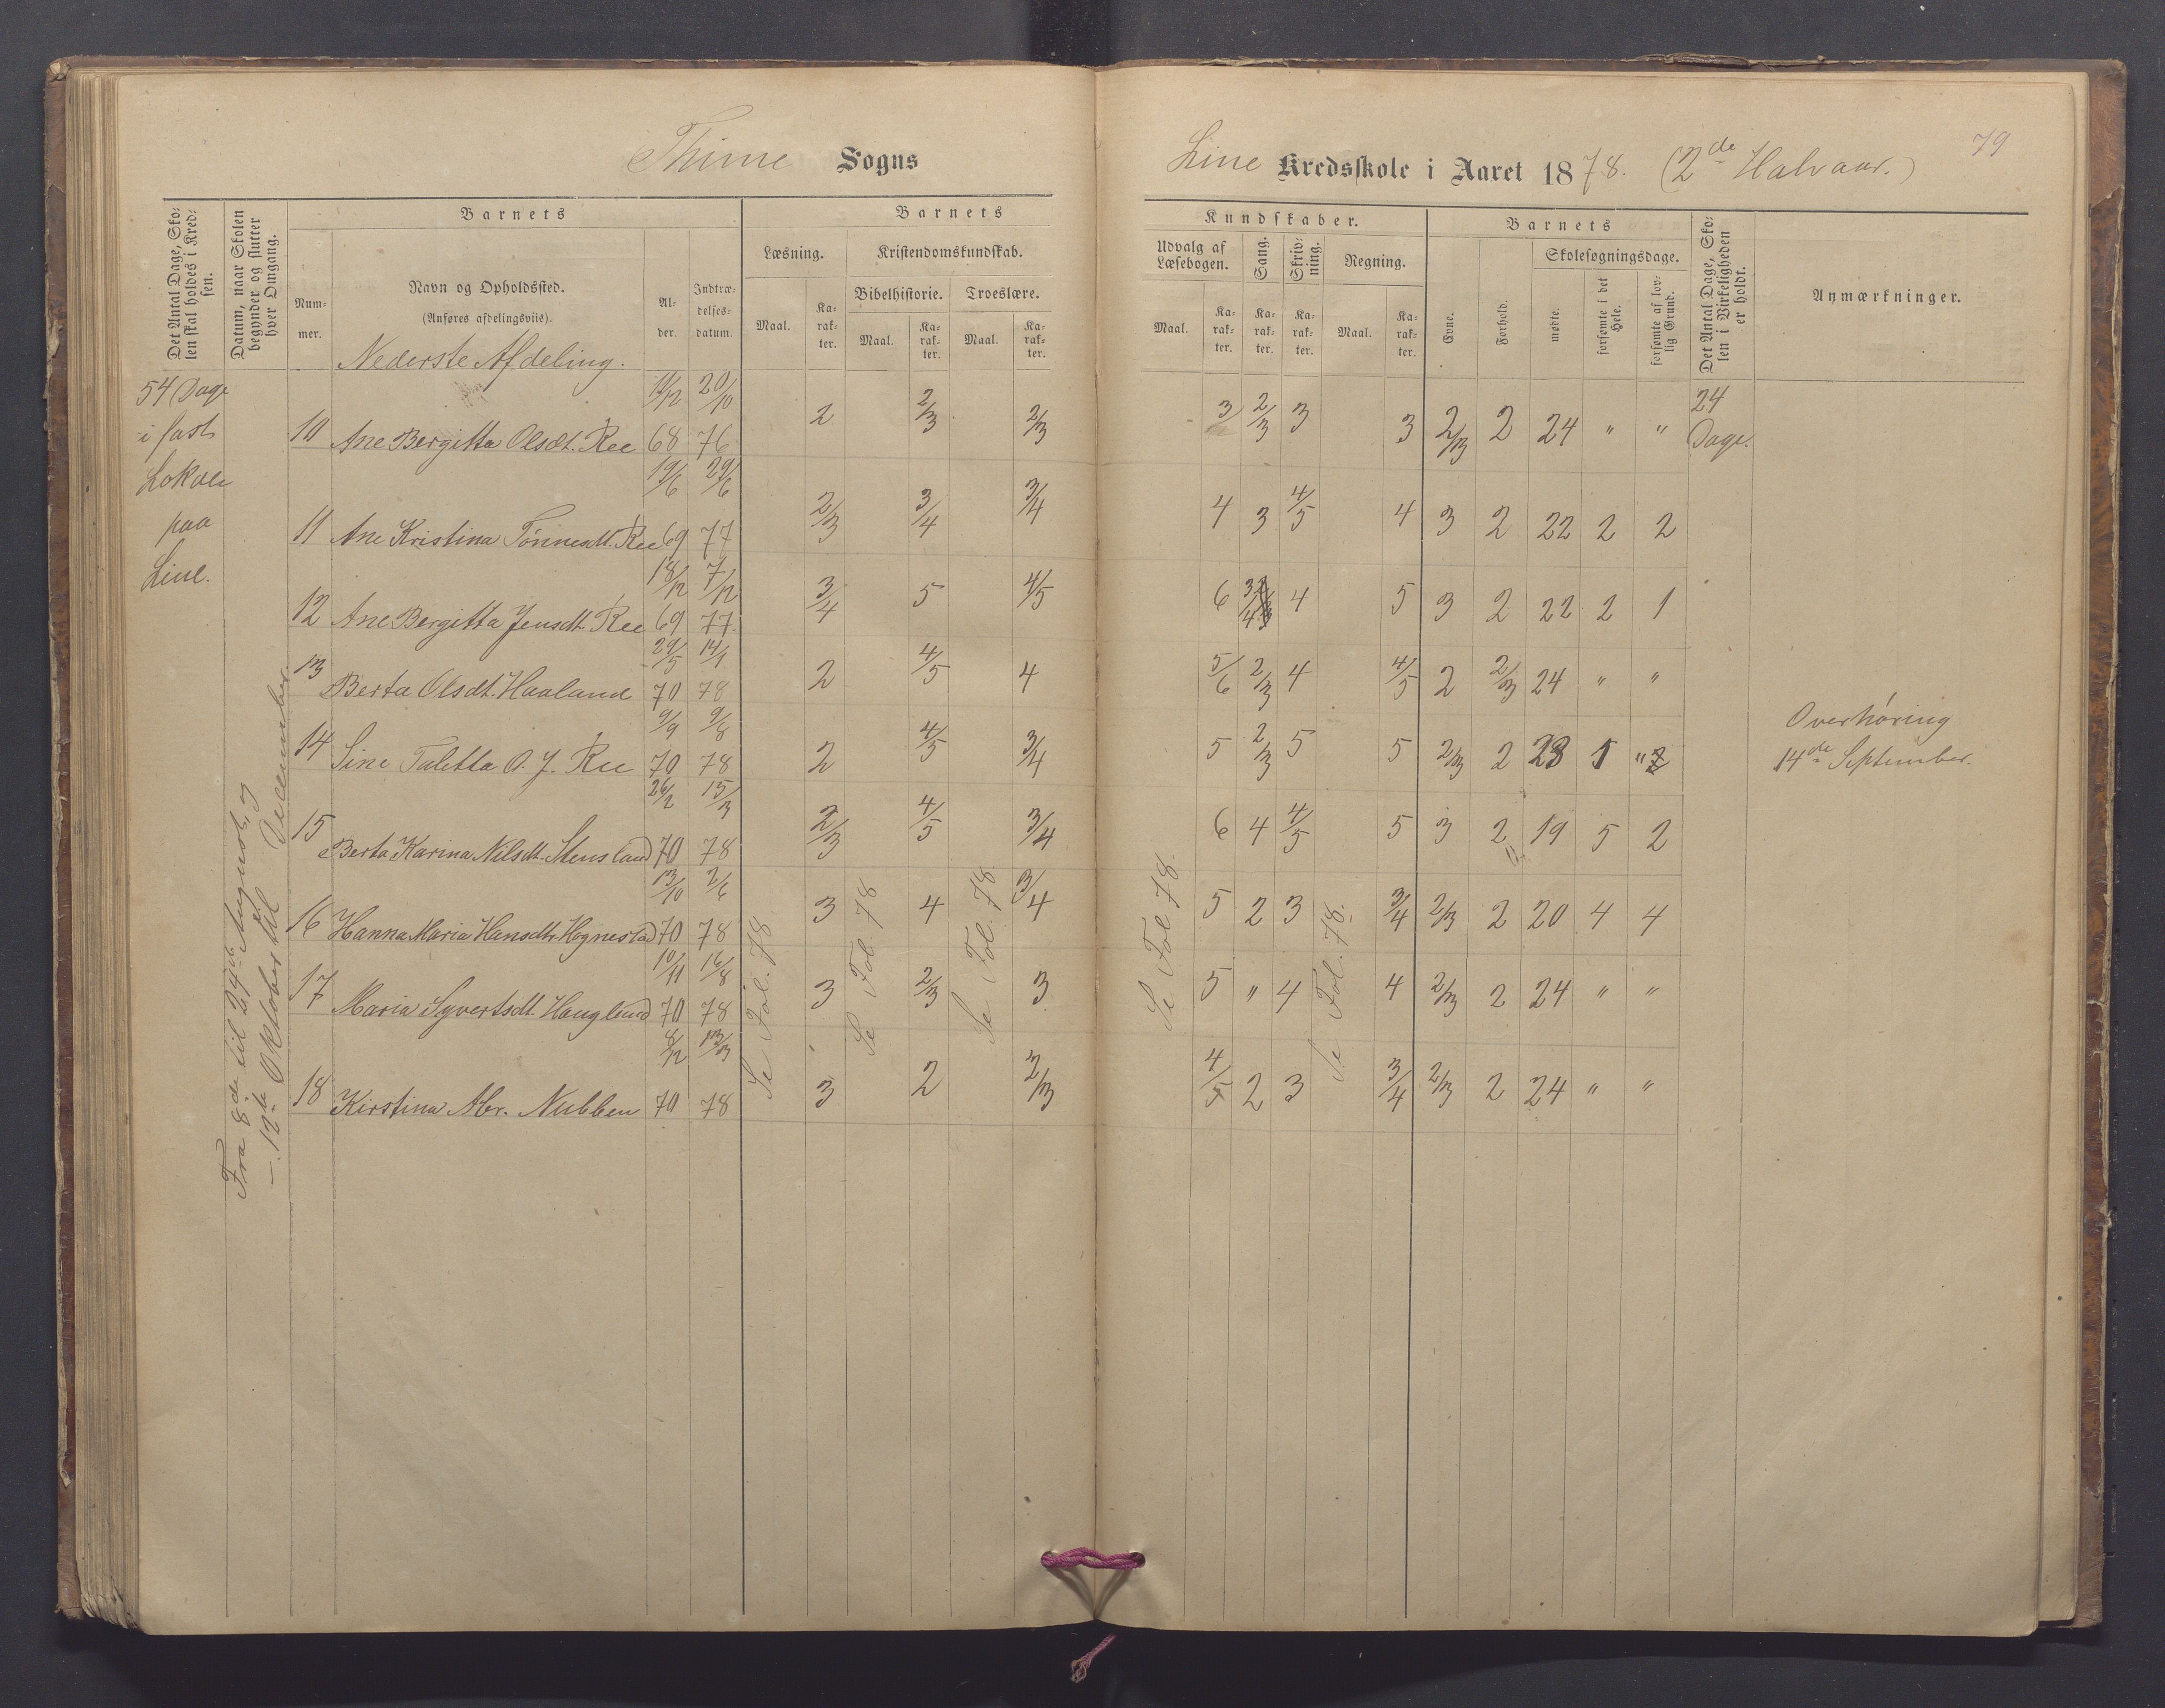 Thime Sogns
Line Kredsskole i Aaret 1878. (2de Halvaar.)
79
Det Antal Dage, Sko-
len skal holdes i Kred-
sen.
Datum, naar Skolen
begynder og slutter
hver Omgang.
Barnets
Num-
mer.
Navn og Opholdssted.
(Anføres afdelingsviis).
Nederste Afdeling.
Al-
der.
Indtræ-
delses-
datum.
Barnets
Læsning.
Maal.
Ka-
rak-
ter.
Kristendomskundskab.
Bibelhistorie.
Maal.
Ka-
rak-
ter.
Troeslære.
Maal.
Ka-
rak-
ter.
Kundskaber.
Udvalg af
Læsebogen.
Maal.
Ka-
rak-
ter.
Sang.
Ka-
rak-
ter.
Skriv-
ning.
Ka-
rak-
ter.
Regning.
Maal.
Ka-
rak-
ter.
Barnets
Evne.
Forhold.
Skolesøgningsdage.
mødte.
forsømte i det
Hele.
forsømte af lov-
lig Grund.
Det Antal Dage, Sko-
len i Virkeligheden
er holdt.
Anmærkninger.
54 Dage
i fast
Lokale
paa
Line.
Fra 8de til 29de August, og
— 12te Oktober til December.
10 Ane Bergitta Olsdt. Ree 11/12 68 20/10 76 2 2/3 2/3 3 2/3 3 3 2/3 2 24 " " 24 Dage.
11 Ane Kristina Tønnesdt. Ree 19/6 69 29/6 77 2/3 3/4 3/4 4 3 4/5 4 3 2 22 2 2
12 Ane Bergitta Jensdt. Ree 18/12 69 7/12 77 3/4 5 4/5 6 3/4 4 5 3 2 22 2 1
13 Berta Olsdt. Haaland 29/5 70 14/1 78 2 4/5 4 5/6 2/3 4 4/5 2 2/3 24 " "
14 Sine Taletta O. J. Ree 9/9 70 9/8 78 2 4/5 3/4 5 2/3 5 5 2/3 2 23 1 "
15 Berta Karina Nilsdt. Stensland 26/2 70 15/3 78 2/3 4/5 3/4 6 4 4/5 5 3 2 19 5 2
16 Hanna Maria Hansdtr. Hognestad 13/10 70 2/6 78 3 4 3/4 5 2 3 3/4 2/3 2 20 4 4
17 Maria Syvertsdt. Haugland 10/11 70 16/8 78 3 2/3 3 5 " 4 4 2/3 2 24 " "
18 Kirstina Abr. Nubben 8/12 70 13/3 78 3 2 2/3 4/5 2 3 3/4 2/3 2 24 " "
Se Fol. 78
Se Fol. 78
Se Fol. 78
Se Fol 78.
Se Fol. 78.
Overhøring
14de September.